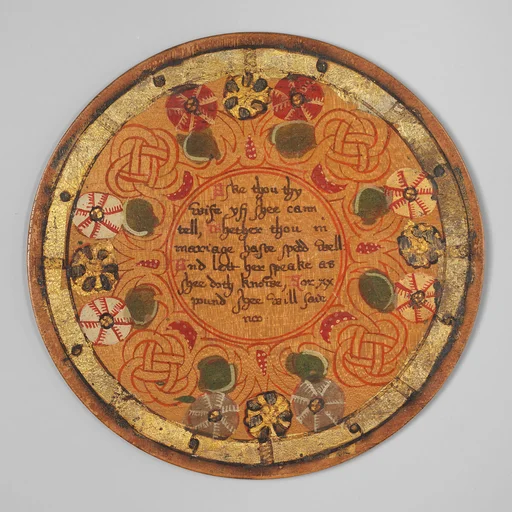 Aske thou thy
wife yf shee cann
tell, Whether thou in
marriage haste spedd well
And lett her speake as
shee doth knowe, For xx
pound shee will saie
noo